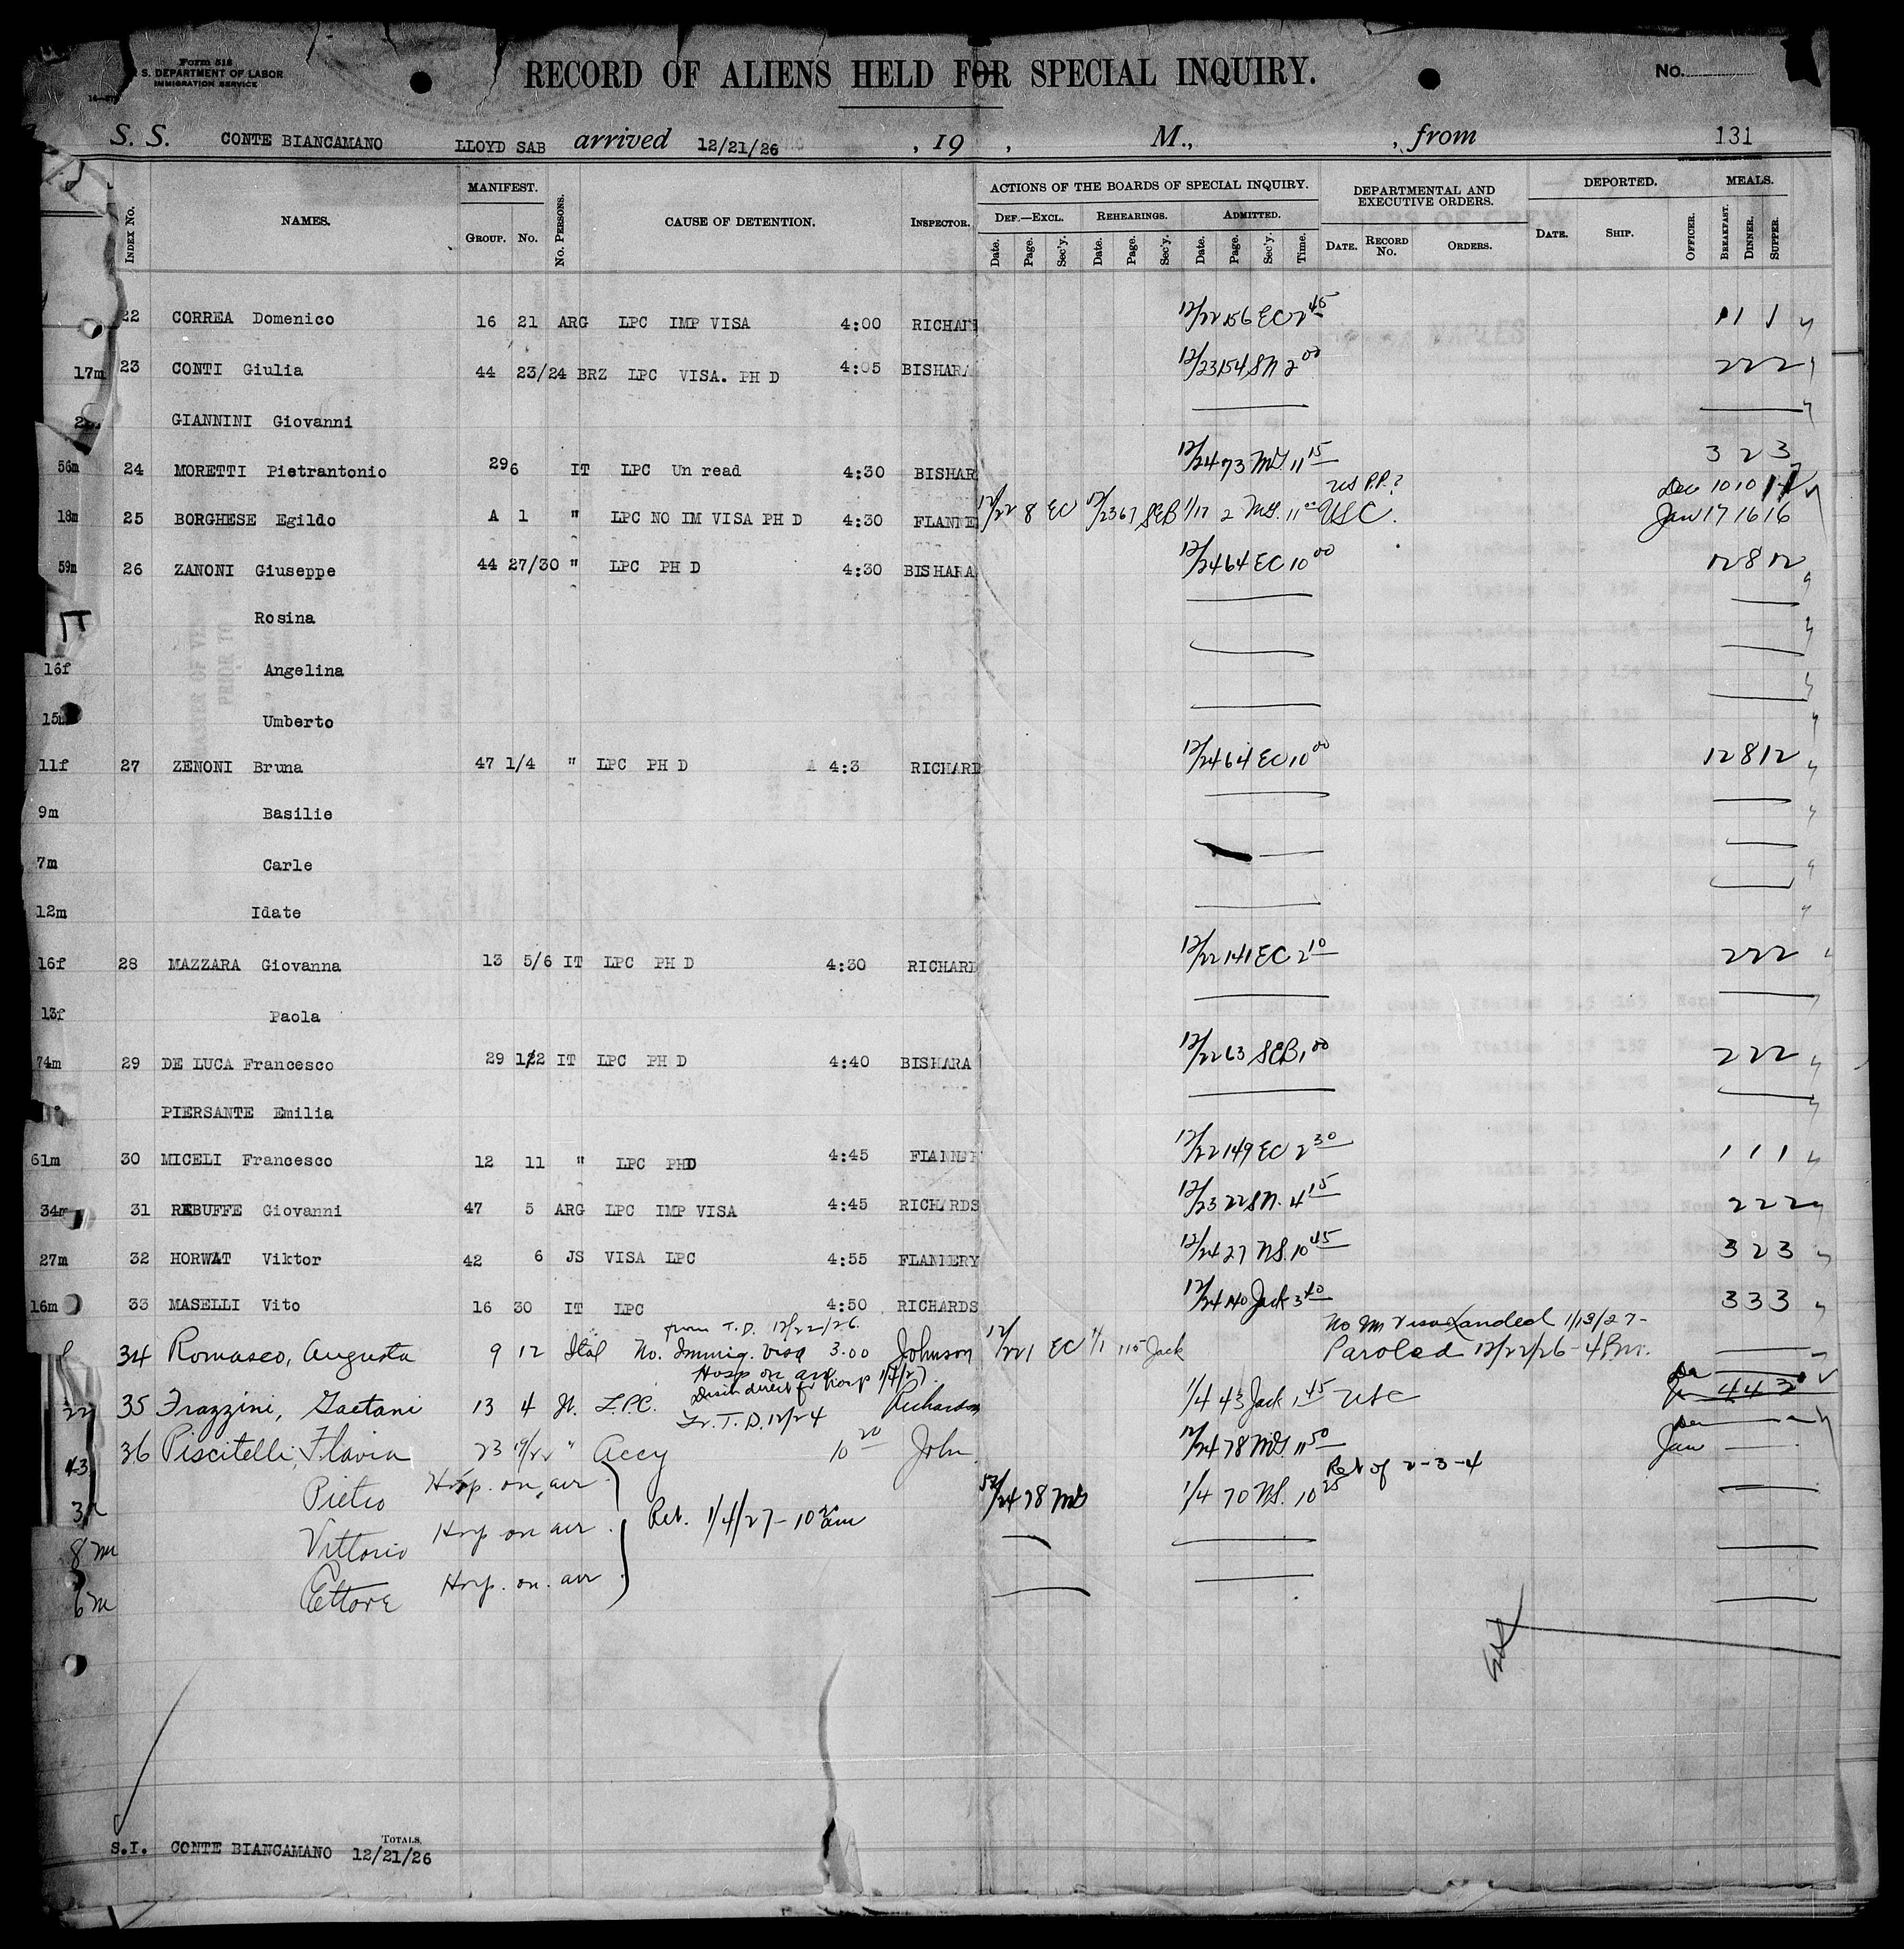 Form 518
S. DEPARTMENT OF LABOR
IMMIGRATION SERVICE
RECORD OF ALIENS HELD FOR SPECIAL INQUIRY.
No.
S. S. CONTE BIANCAMANO LLOYD SAB arrived 12/21/26 , 19 , M., , from 131
INDEX No. NAMES. MANIFEST. GROUP. No. No. PERSONS. CAUSE OF DETENTION. INSPECTOR. ACTIONS OF THE BOARDS OF SPECIAL INQUIRY. DEF.—EXCL. REHEARINGS. ADMITTED. DEPARTMENTAL AND EXECUTIVE ORDERS. DEPORTED. MEALS.
Date. Page. Sec'y. Date. Page. Sec'y. Date. Page. Sec'y. Time. DATE. RECORD No. ORDERS. DATE. SHIP. OFFICER. BREAKFAST. DINNER. SUPPER.
22 CORREA Domenico 16 21 ARG LPC IMP VISA 4:00 RICHAR 12/22 156 EC 2 45 1 1 1
17m 23 CONTI Giulia 44 23/24 BRZ LPC VISA. PH D 4:05 BISHARA 12/23 154 SN 2 00 2 2 2
GIANNINI Giovanni
56m 24 MORETTI Pietrantonio 29 6 IT LPC Un read 4:30 BISHAR 12/24 73 11 15 3 2 3
US P.P.? Dec 10 10 11
18m 25 BORGHESE Egildo A 1 " LPC NO IM VISA PH D 4:30 FLANNE 12/22 8 EC 12/23 67 SEB 1/17 2 11 00 USC. Jan 17 16 16
59m 26 ZANONI Giuseppe 44 27/30 " LPC PH D 4:30 BISHARA 12/24 64 EC 10 00 12 8 12
Rosina
16f Angelina
15m Umberto
11f 27 ZENONI Bruna 47 1/4 " LPC PH D 4:3 RICHARD 12/24 64 EC 10 00 12 8 12
9m Basilie
7m Carle
12m Idate
16f 28 MAZZARA Giovanna 13 5/6 IT LPC PH D 4:30 RICHARD 12/22 141 EC 2 10 2 2 2
13f Paola
74m 29 DE LUCA Francesco 29 1/22 IT LPC PH D 4:40 BISHARA 12/22 63 SEB 1 00 2 2 2
PIERSANTE Emilia
61m 30 MICELI Francesco 12 11 " LPC PHD 4:45 FLANNER 12/22 149 EC 2 30 1 1 1
34m 31 REBUFFE Giovanni 47 5 ARG LPC IMP VISA 4:45 RICHARDS 12/23 22 SN. 4 15 2 2 2
27m 32 HORWAT Viktor 42 6 JS VISA LPC 4:55 FLANNERY 12/24 27 NS. 10 45 3 2 3
16m 33 MASELLI Vito 16 30 IT LPC 4:50 RICHARDS 12/24 140 Jack 3 40 3 3 3
from T.D. 12/22/26. No Im Visa Landed 1/13/27-
34 Romasco, Augusta 9 12 Ital No. Immig. Visa 3.00 Johnson 12/22 1 EC 1/1 115 Jack Paroled 12/22/26 - 4 P.m.
Hosp on arr
direct fr Hosp 1/4/27.
22 35 Frazzini, Gaetani 13 4 It. L.P.C. Fr. T.D. 12/24 Richards 1/4 43 Jack 1 45 USC 4 4 3
36 Piscitelli, Flavia 23 " Accy 10 20 John 12/24 78 11 50 Jan
43 Ret of 2-3-4
3 Pietro Hosp. on arr 12/24 78 1/4 70 NS. 10 25
Ret. 1/4/27 - 10 am
8m Vittorio Hosp on arr
6m Ettore Hosp. on. arr
TOTALS.
S.I. CONTE BIANCAMANO 12/21/26